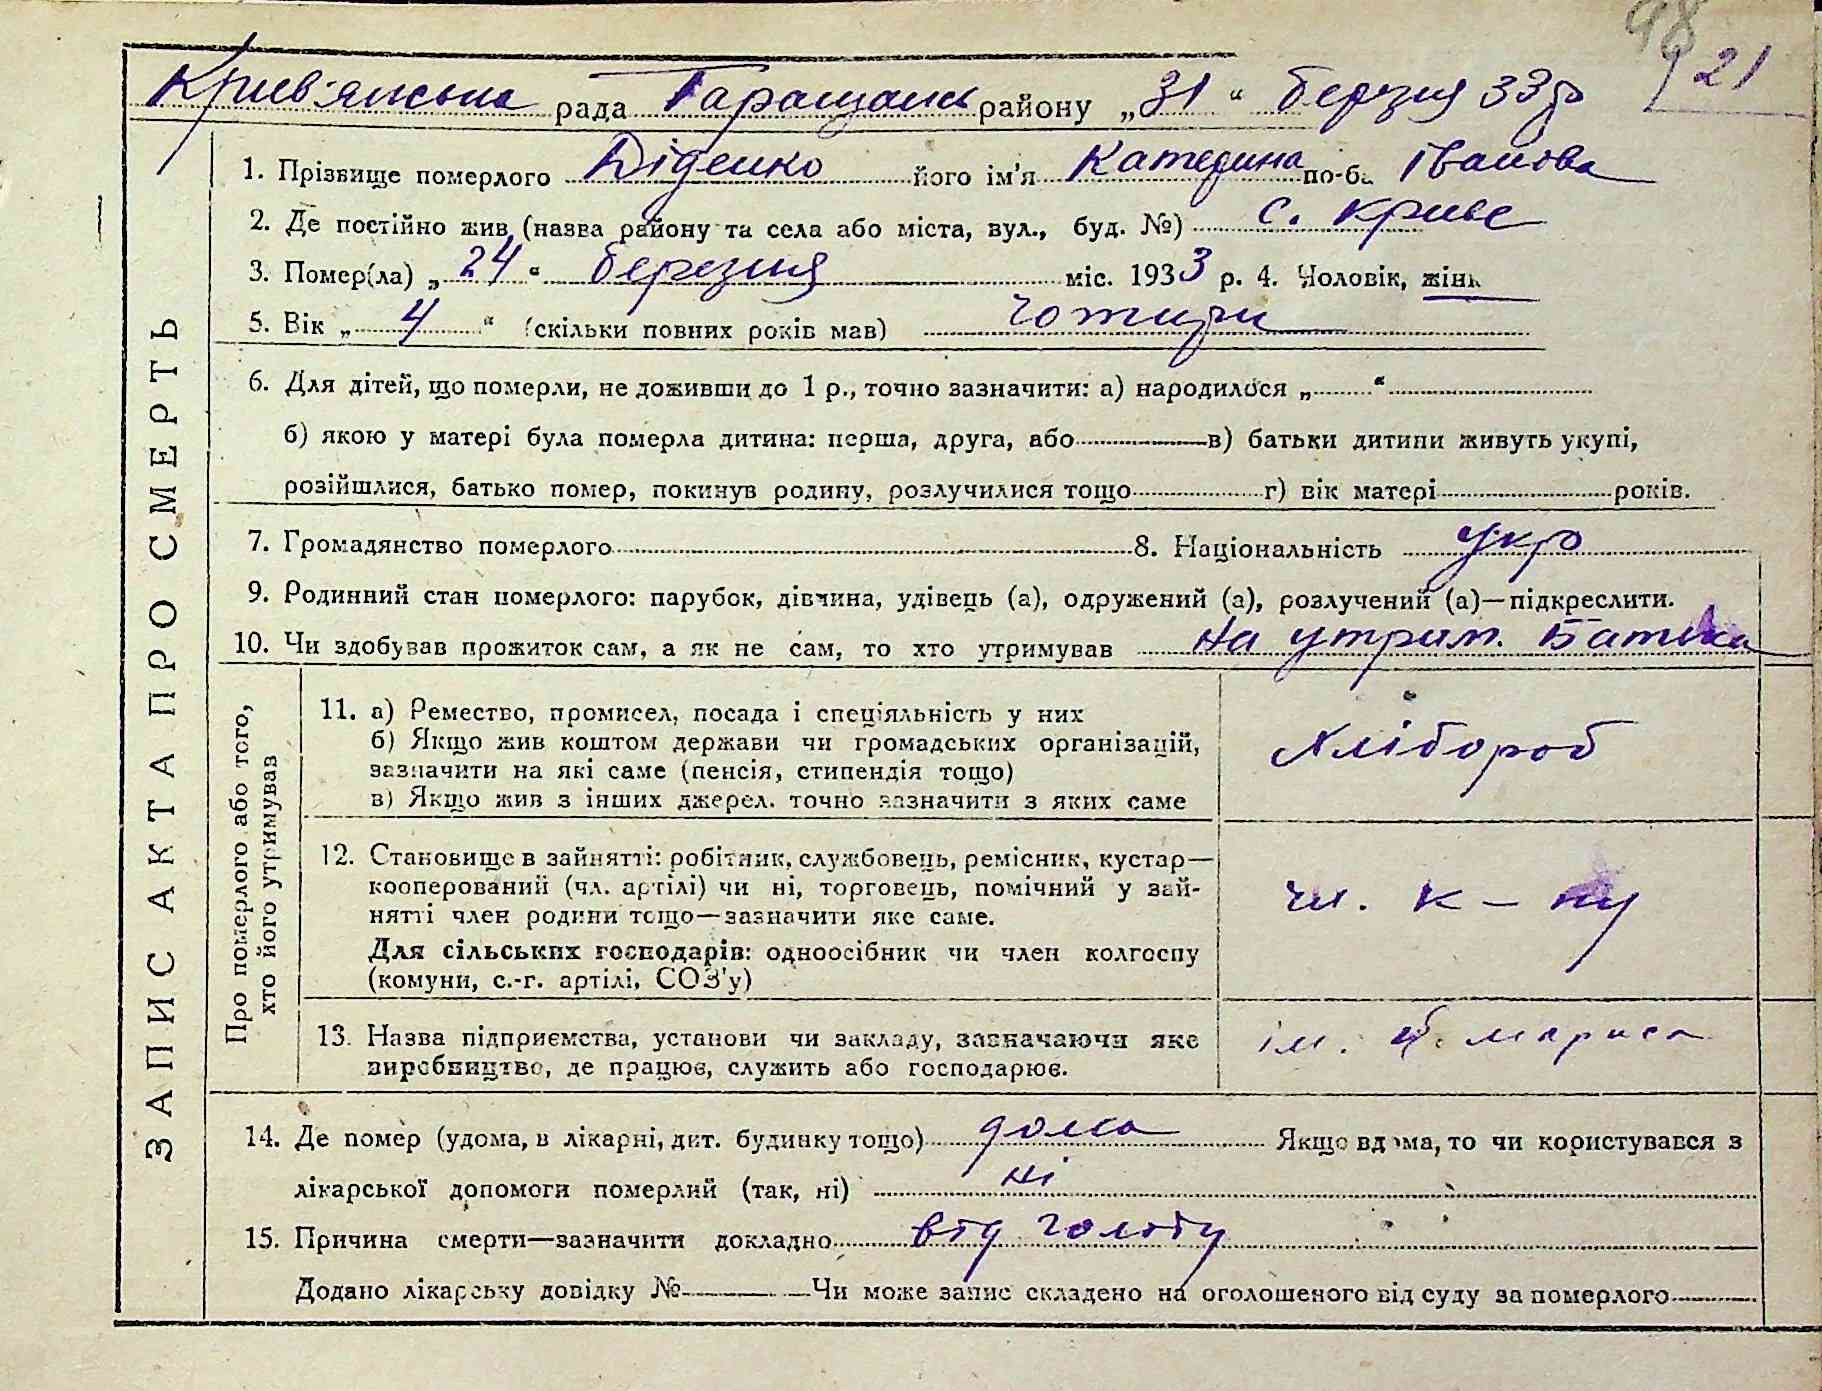 98
21
Крив'янська рада Таращанськ району „31“ березня 33 р
ЗАПИС АКТА ПРО СМЕРТЬ
1. Прізвище померлого Діденко його ім'я Катерина по-ба Іванова
2. Де постійно жив (назва району та села або міста, вул., буд. №) с. Криве
3. Помер(ла) „24“ березня міс. 1933 р. 4. Чоловік, жінк
5. Вік „4“ (скільки повних років мав) чотири
6. Для дітей, що померли, не доживши до 1 р., точно зазначити: а) народилося „ “
б) якою у матері була померла дитина: перша, друга, або в) батьки дитини живуть укупі,
розійшлися, батько помер, покинув родину, розлучилися тощо г) вік матері років.
7. Громадянство померлого 8. Національність укр
9. Родинний стан померлого: парубок, дівчина, удівець (а), одружений (а), розлучений (а)—підкреслити.
10. Чи здобував прожиток сам, а як не сам, то хто утримував на утрим. батька
Про померлого або того,
хто його утримував
11. а) Ремество, промисел, посада і спеціяльність у них
б) Якщо жив коштом держави чи громадських організацій,
зазначити на які саме (пенсія, стипендія тощо)
в) Якщо жив з інших джерел. точно зазначити з яких саме
Хлібороб
12. Становище в зайнятті: робітник, службовець, ремісник, кустар—
кооперований (чл. артілі) чи ні, торговець, помічний у зай-
нятті член родини тощо—зазначити яке саме.
Для сільських господарів: одноосібник чи член колгоспу
(комуни, с.-г. артілі, СОЗ'у)
чл. к-пу
13. Назва підприємства, установи чи закладу, зазначаючи яке
виробництво, де працює, служить або господарює.
ім. Маркса
14. Де помер (удома, в лікарні, дит. будинку тощо) дома Якщо вдома, то чи користувався з
лікарської допомоги померлий (так, ні) ні
15. Причина смерти—зазначити докладно від голоду
Додано лікарську довідку № Чи може запис складено на оголошеного від суду за померлого